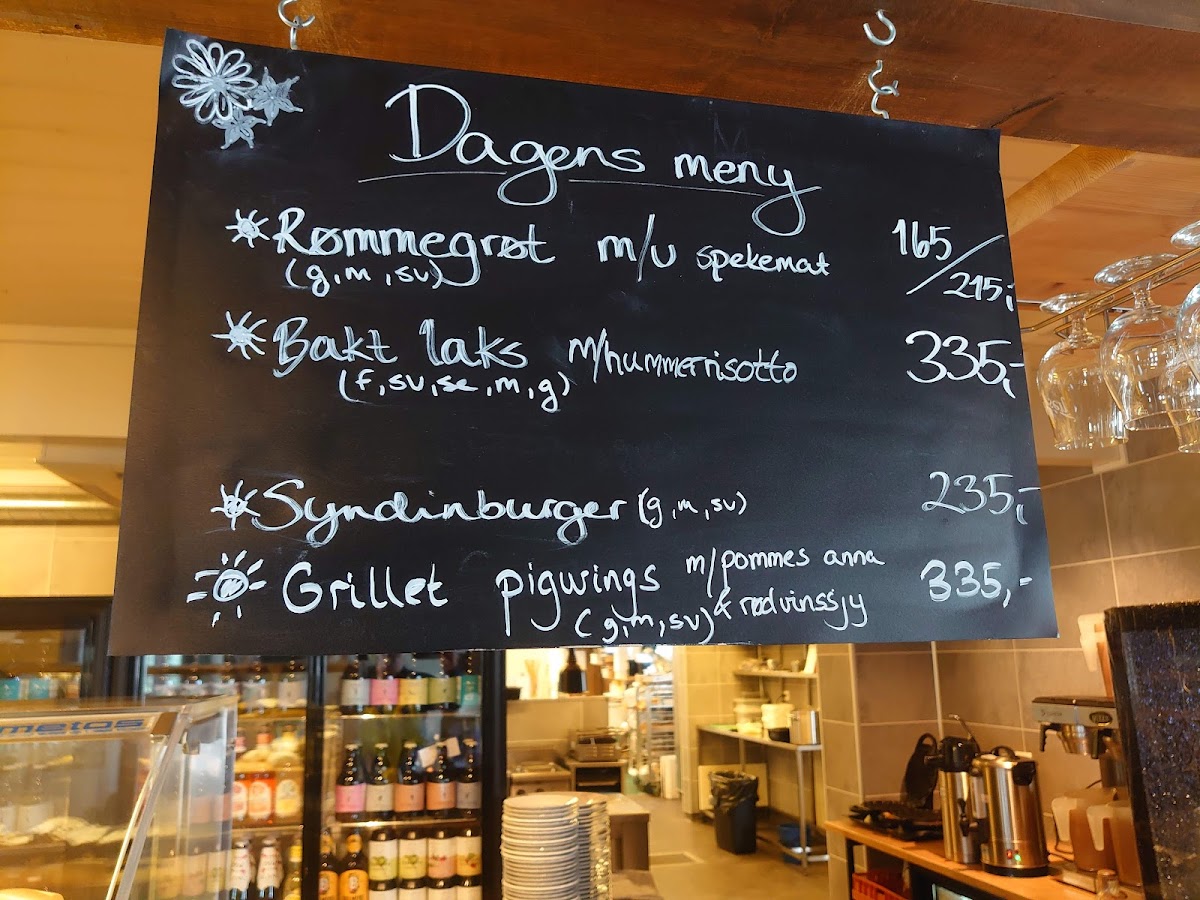 Dagens meny
Rømmegrøt m/u spekemat 165/215,-
(g,m,sv)
Bakt laks m/hummerrisotto 335,-
(f,sv,se,m,g)
Syndinburger (g,m,sv) 235,-
Grillet pigwings m/pommes anna 335,-
(g,m,sv) & rødvinssjy
metos